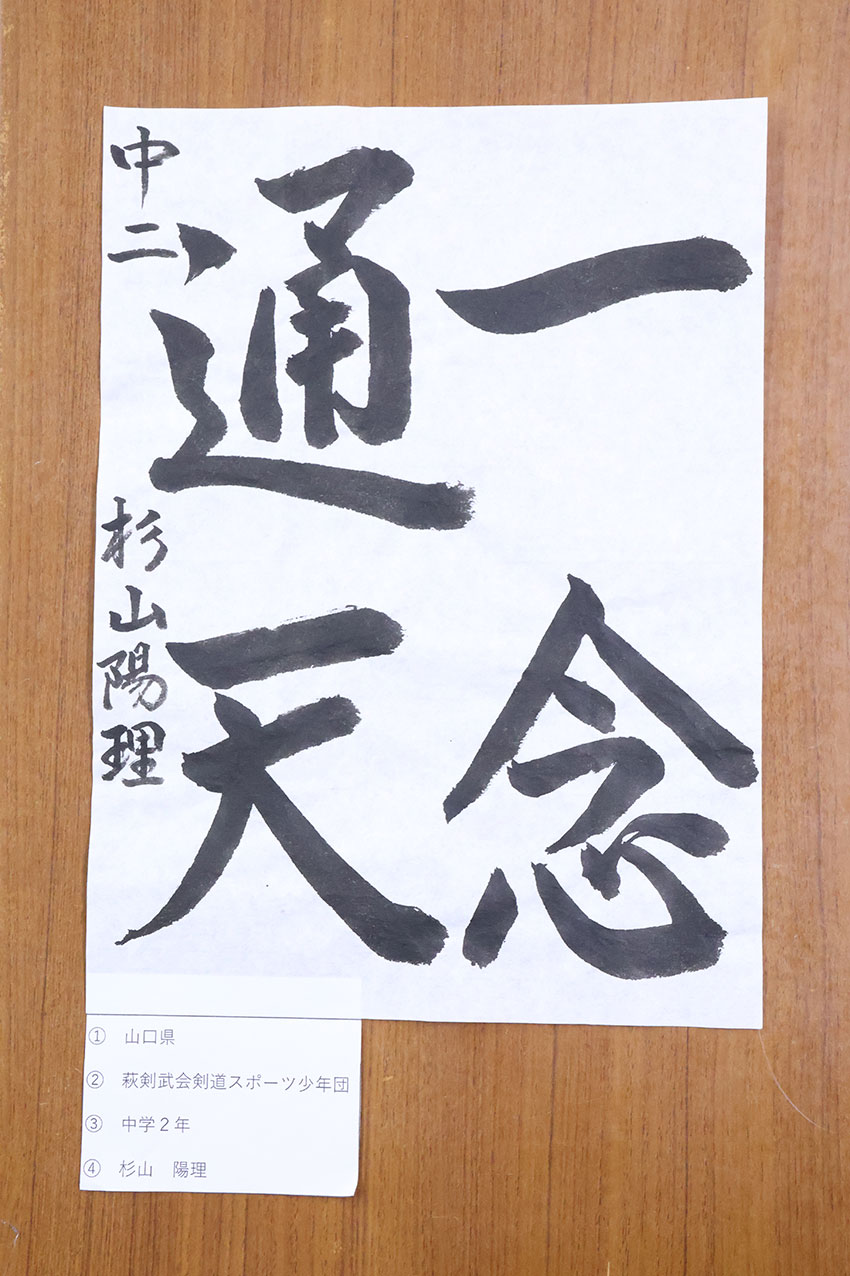 一念
通天
中二 杉山陽理
① 山口県
② 萩剣武会剣道スポーツ少年団
③ 中学２年
④ 杉山 陽理